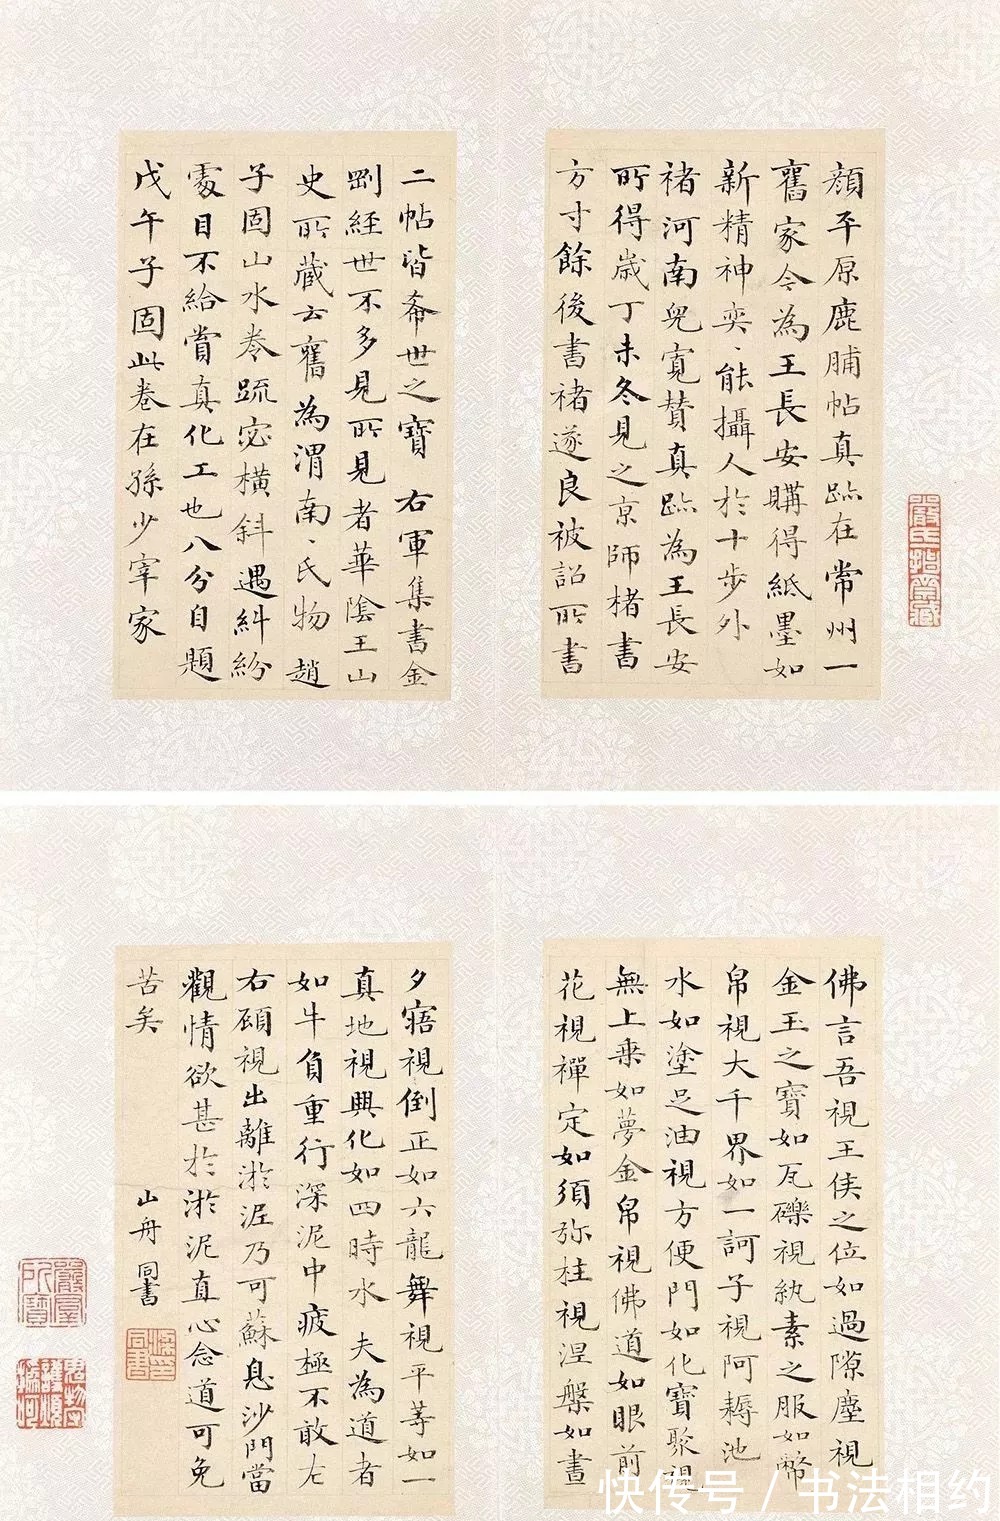 顏平原鹿脯帖真跡在常州一
舊家今為王長安購得紙墨如
新精神奕、能攝人於十步外
褚河南兒寬贊真跡為王長安
所得歲丁未冬見之京師楮書
方寸餘後書褚遂良被詔所書
二帖皆希世之寶 右軍集書金
剛經世不多見所見者華陰王山
史所藏云舊為渭南、氏物 趙
子固山水卷疏密橫斜遇糾紛
處目不給賞真化工也八分自題
戊午子固此卷在孫少宰家
佛言吾視王侯之位如過隙塵視
金玉之寶如瓦礫視紈素之服如幣
帛視大千界如一訶子視阿耨池
水如塗足油視方便門如化寶聚視
無上乘如夢金帛視佛道如眼前
花視禪定如須弥柱視涅槃如晝
夕寤視倒正如六龍舞視平等如一
真地視興化如四時水 夫為道者
如牛負重行深泥中疲極不敢左
右顧視出離淤泥乃可蘇息沙門當
觀情欲甚於淤泥直心念道可免
苦矣
山舟 同書
快传号 / 书法相约